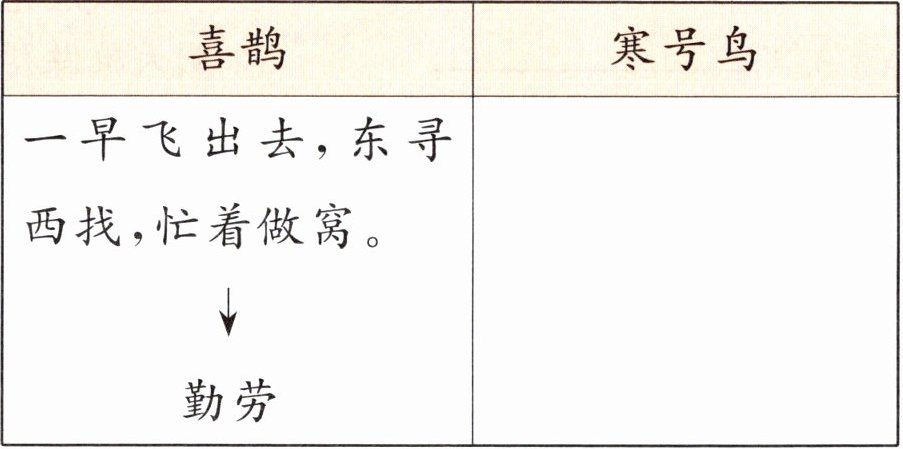 喜鹊
寒号鸟
一早飞出去,东寻
西找,忙着做窝。
↓
勤劳